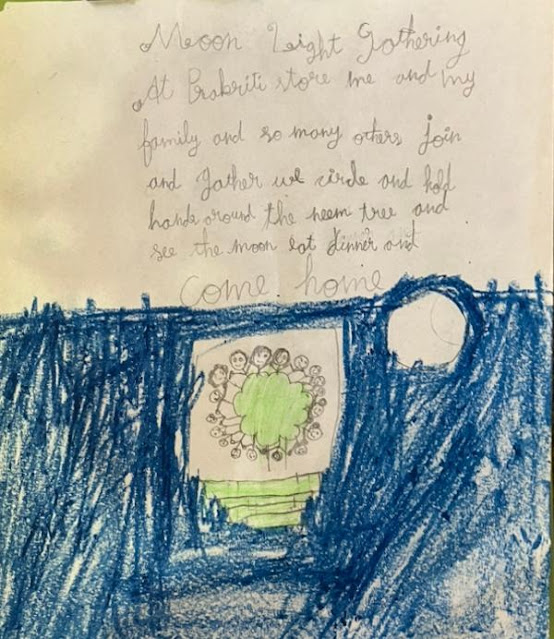 Moon Light Gathering
At Prakriti store me and my
family and so many others join
and gather we circle and hold
hands around the neem tree and
see the moon eat dinner and
come home